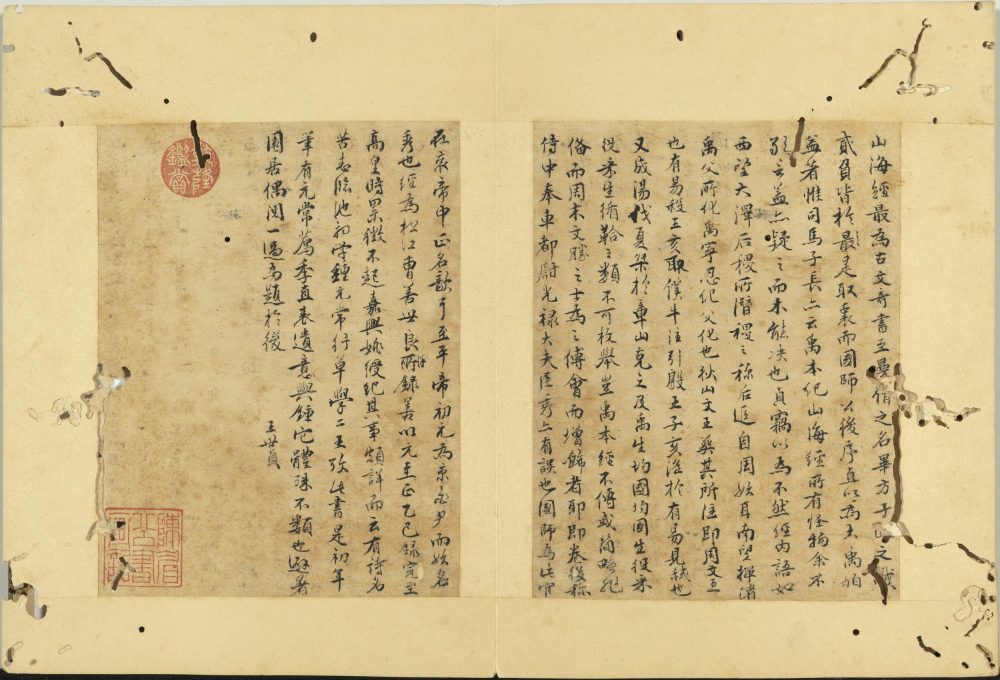 山海經最為古文奇書至曼倩之名畢方子政之識
貳負皆於最是取裏而國師公後序直以為大禹伯
益著惟司馬子長亦云禹本紀山海經所有怪物余不
敢言蓋亦疑之而未能決也貞竊以為不然經內語如
西望大澤后稷所潛稷之祢后追自周始耳南望墠渚
禹父所化禹寧忍紀父化也狄山文王葬其所注即周文王
也有易殺王亥取僕牛注引殷王子亥淫於有易見弒也
又成湯伐夏桀於章山克之及禹生均國均國生役采
役采生循鞈之類不可枚舉豈禹本經不傳或簡略非
備而周末文勝之士為之傅會而增飾者耶即卷後稱
侍中奉車都尉光祿大夫臣秀亦有誤也國師為此官
在哀帝中正名歆耳至平帝初元為京兆尹而始名
秀也經為松江曹善世良所錄善以元至正乙巳錄完至
高皇時累徵不起嘉興姚綬紀其事頗詳而云有詩名
苦志臨池初學鍾元常行草學二王攷此書是初年
筆有元常薦季直表遺意與鍾它體殊不類也避暑
園居偶閱一過為題於後
王世貞